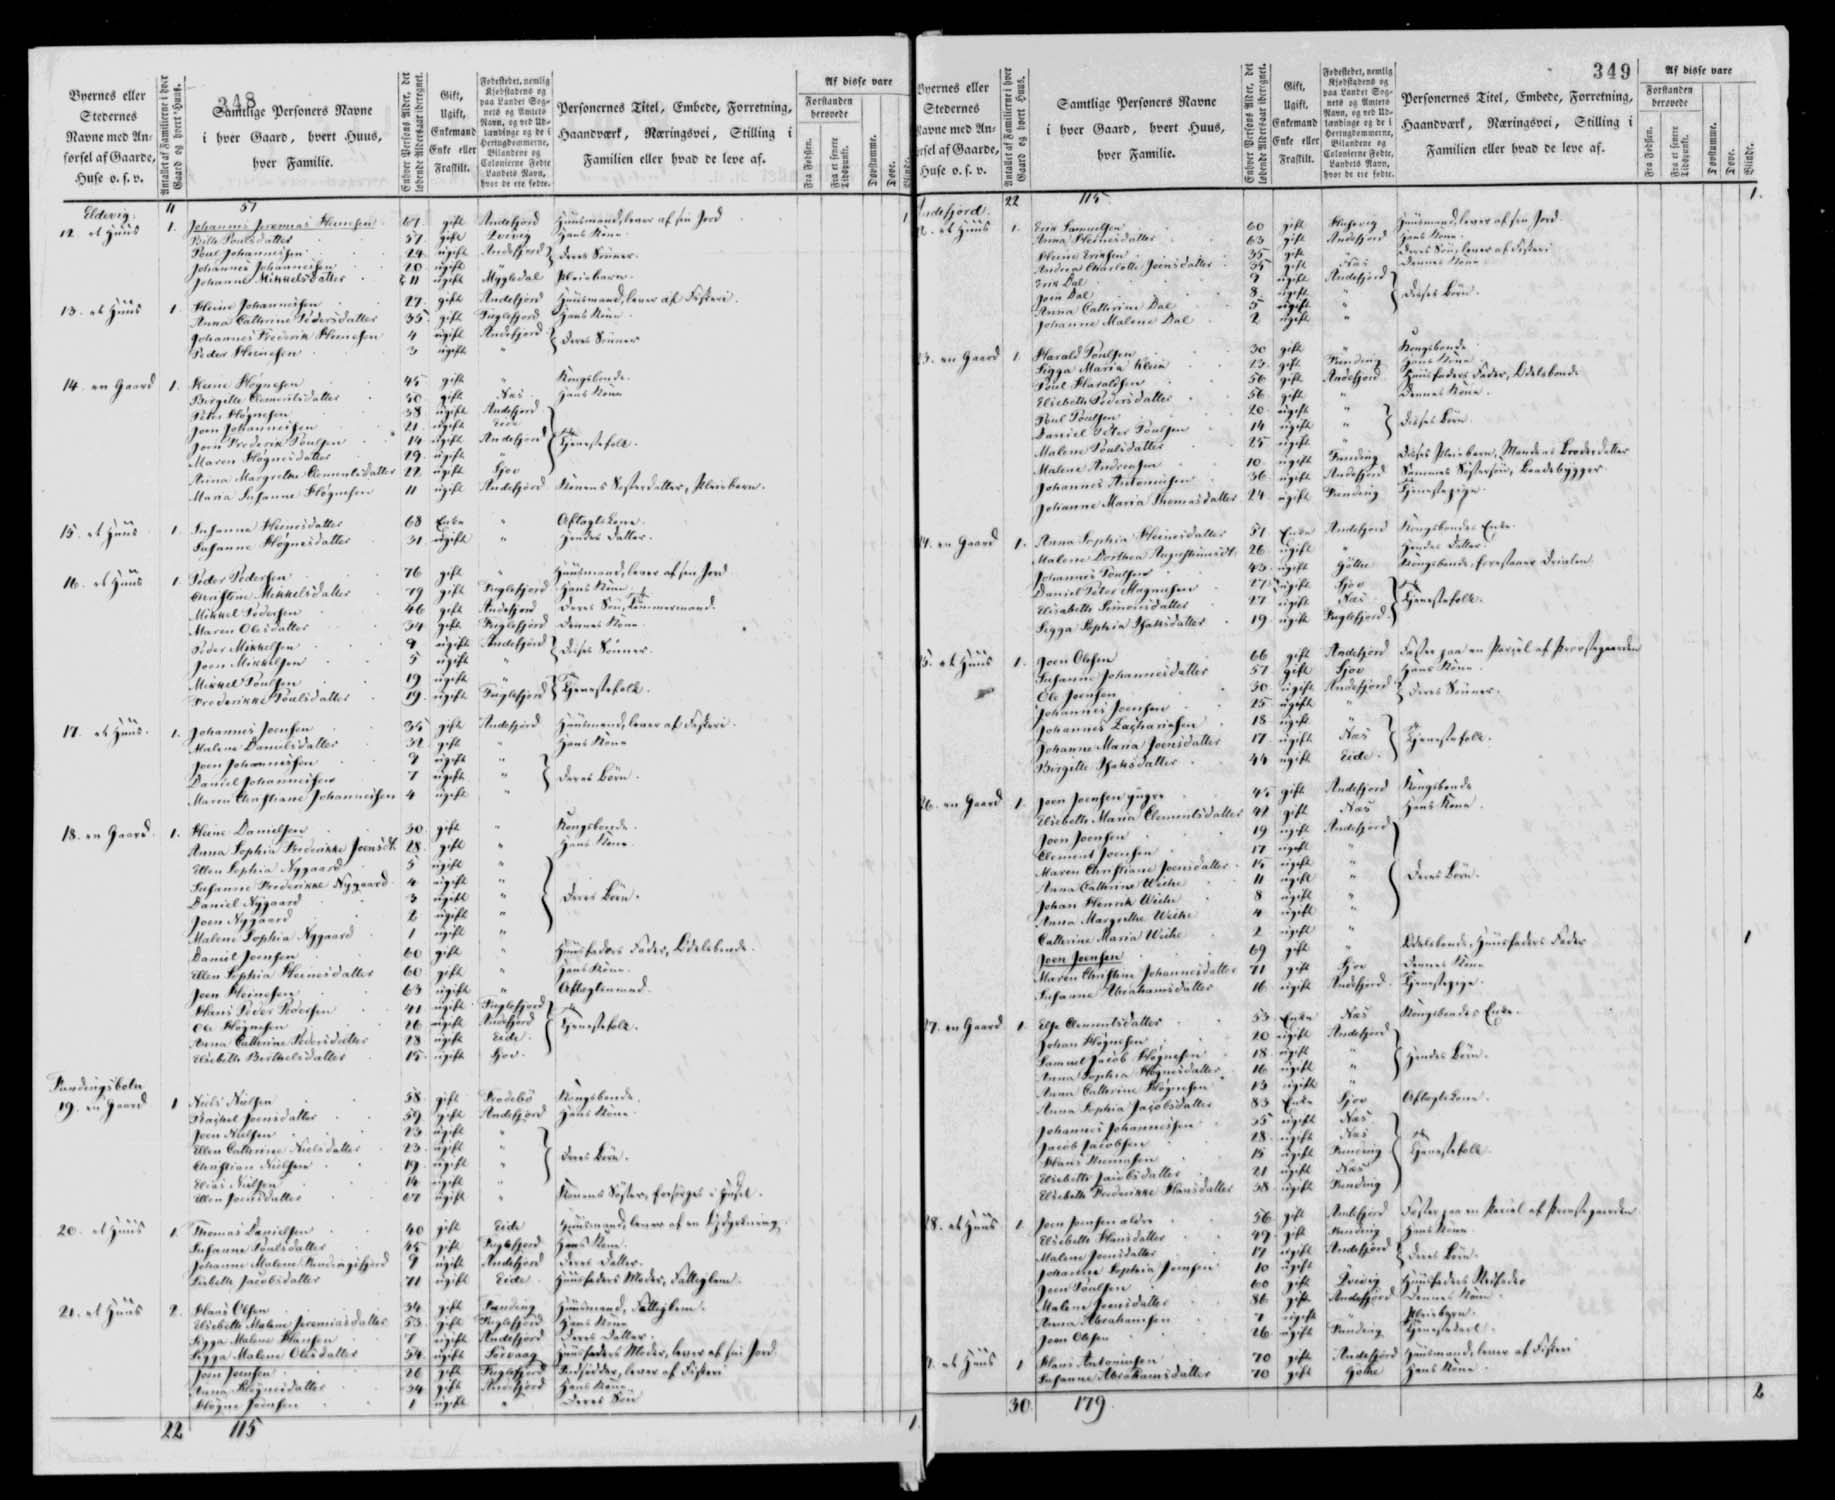 348
Byernes eller Stedernes Navne med Anførsel af Gaarde, Huse o. s. v.
Antallet af Familierne i hver Gaard og hvert Huus.
Samtlige Personers Navne i hver Gaard, hvert Huus, hver Familie.
Enhver Persons Alder, det løbende Aldersaar iberegnet.
Gift, Ugift, Enkemand Enke eller Fraskilt.
Fødestedet, nemlig Kjøbstadens og paa Landet Sognets og Amtets Navn, og ved Udlændinge og de i Hertugdømmerne, Bilandene og Colonierne Fødte Landets Navn, hvor de ere fødte.
Personernes Titel, Embede, Forretning, Haandværk, Næringsvei, Stilling i Familien eller hvad de leve af.
Af disse vare
Forstanden berovede
Fra Fødslen.
Fra et senere Tidspunkt.
Døvstumme.
Døve.
Blinde.
11 57 1
Eldevig.
12. et Huus 1. Johannes Jeremias Heinesen 67 gift Andefjord Huusmand, lever af sin Jord
Poulsdatter 57 gift hans Kone
Poul Johannesen 24 ugift Andefjord deres Sønner
Johannes Johannesen 20 ugift "
Johanne Mikkelsdatter 11 ugift Mygledal Pleiebarn
13. et Huus 1 Heine Johannesen 27 gift Andefjord Huusmand, lever af Fiskeri
Anna Cathrine Pedersdatter 35 gift Fuglefjord hans Kone
Johannes Frederik Heinesen 4 ugift Andefjord deres Sønner
Peder Heinesen 3 ugift "
14. en Gaard 1. Heine Høgnesen 45 gift " Kongsbonde
Birgitte Clementsdatter 50 gift Næs hans Kone
Peter Høgnesen 38 ugift Andefjord
Joen Johannesen 21 ugift Eide
Joen Frederik Poulsen 14 ugift Andefjord Tjenestefolk
Maren Høgnesdatter 29 ugift "
Anna Margrethe Clementsdatter 22 ugift Gjov
Maria Susanne Høgnesen 11 ugift Andefjord Konens Søsterdatter, Pleiebarn
15. et Huus 1 Susanne Heinesdatter 68 Enke " Aftægtskone
Susanne Høgnesdatter 31 ugift " hendes Datter
16. et Huus 1 Peder Pedersen 76 gift " Huusmand, lever af sin Jord
Christine Mikkelsdatter 79 gift Fuglefjord hans Kone
Mikkel Pedersen 46 gift Andefjord deres Søn, Tømmermand
Maren Olesdatter 34 gift Fuglefjord dennes Kone
Peder Mikkelsen 9 ugift Andefjord disses Sønner
Joen Mikkelsen 5 ugift "
Mikkel Poulsen 19 ugift " Tjenestefolk
Frederikke Poulsdatter 19 ugift Fuglefjord
17. et Huus 1. Johannes Joensen 35 gift Andefjord Huusmand, lever af Fiskeri
Malene Danielsdatter 32 gift " hans Kone
Joen Johannesen 9 ugift "
Daniel Johannesen 7 ugift " deres Børn
Maren Christiane Johannesen 4 ugift "
18. en Gaard 1. Heine Danielsen 30 gift " Kongsbonde
Anna Sophia Frederikke Joensdt. 28 gift " hans Kone
Ellen Sophia Nygaard 5 ugift "
Susanne Frederikke Nygaard 4 ugift "
Daniel Nygaard 3 ugift " deres Børn
Joen Nygaard 2 ugift "
Malene Sophia Nygaard 1 ugift "
Daniel Joensen 60 gift " Huusfaders Fader, Odelsbonde
Ellen Sophia Heinesdatter 60 gift " hans Kone
Joen Heinesen 63 ugift " Aftægtsmand
Hans Peder Pedersen 41 ugift Fuglefjord
Ole Høgnesen 26 ugift Andefjord Tjenestefolk
Anna Cathrine Pedersdatter 28 ugift Eide
Elsebeth Berthelsdatter 15 ugift Gjov
Fundingsbotn
19. en Gaard 1 Niels Nielsen 58 gift Kongsbonde
Rachel Joensdatter 59 gift Andefjord hans Kone
Joen Nielsen 23 ugift "
Ellen Cathrine Nielsdatter 23 ugift "
Christian Nielsen 19 ugift " deres Børn
Elias Nielsen 14 ugift "
Ellen Joensdatter 67 ugift " Konens Søster, forsørges i Huset
20. et Huus 1. Thomas Danielsen 40 gift Eide Huusmand, lever af
Susanne Poulsdatter 45 gift Fuglefjord hans Kone
Johanne Malene Fundingsfjord 9 ugift Andefjord deres Datter
Lisbeth Jacobsdatter 71 ugift Eide Huusfaders Moder, Fattiglem
21. et Huus 2. Hans Olsen 34 gift Funding Huusmand, Fattiglem
Elsebeth Malene Jeremiasdatter 53 gift Fuglefjord hans Kone
Sigga Malene Hansen 7 ugift Andefjord deres Datter
Sigga Malene Olesdatter 54 ugift Sørvaag Huusfaders Moder, lever af sin Jord
Joen Joensen 26 gift Fuglefjord Indsidder, lever af Fiskeri
Anna Høgnesdatter 34 gift Andefjord hans Kone
Høgne Joensen 1 ugift " deres Søn
22 115 1
349
Byernes eller Stedernes Navne med Anførsel af Gaarde, Huse o. s. v.
Antallet af Familierne i hver Gaard og hvert Huus.
Samtlige Personers Navne i hver Gaard, hvert Huus, hver Familie.
Enhver Persons Alder, det løbende Aldersaar iberegnet.
Gift, Ugift, Enkemand Enke eller Fraskilt.
Fødestedet, nemlig Kjøbstadens og paa Landet Sognets og Amtets Navn, og ved Udlændinge og de i Hertugdømmerne, Bilandene og Colonierne Fødte, Landets Navn, hvor de ere fødte.
Personernes Titel, Embede, Forretning, Haandværk, Næringsvei, Stilling i Familien eller hvad de leve af.
Af disse vare
Forstanden berovede
Fra Fødslen.
Fra et senere Tidspunkt.
Døvstumme.
Døve.
Blinde.
Andefjord. 22 115 1.
22. et Huus 1. Erik Samuelsen 60 gift Husevig Huusmand, lever af sin Jord
Anna Heinesdatter 63 gift Andefjord hans Kone
Heine Eriksen 35 gift " deres Søn, lever af Fiskeri
Andrea Charlotte Joensdatter 35 gift Næs dennes Kone
Erik Dal 9 ugift Andefjord
Joen Dal 8 ugift " disses Børn
Anna Cathrine Dal 5 ugift "
Johanne Malene Dal 2 ugift "
23. en Gaard 1. Harald Poulsen 30 gift " Kongsbonde
Sigga Maria Klein 23 gift Funding hans Kone
Poul Haraldsen 56 gift Andefjord Huusfaders Fader, Odelsbonde
Elsebeth Pedersdatter 56 gift " dennes Kone
Poul Poulsen 20 ugift "
Daniel Peter Poulsen 14 ugift " disses Børn
Malene Poulsdatter 25 ugift "
Malene Andreasen 10 ugift Funding disses Pleiebarn, Mandens Broderdatter
Johannes Antoniusen 36 ugift Andefjord Konens Søstersøn, Baadebygger
Johanne Maria Thomasdatter 24 ugift Funding Tjenestepige
24. en Gaard 1. Anna Sophia Heinesdatter 51 Enke Andefjord Kongsbondes Enke
Malene Dorthea Augustinusdt. 26 ugift " hendes Datter
Johannes Poulsen 43 ugift Göthe Kongsbonde, forestaaer Driften
Daniel Peter Magnusen 27 ugift Gjov
Elisabeth Simonsdatter 27 ugift Næs Tjenestefolk
Sigga Sophia Isaksdatter 19 ugift Fuglefjord
25. et Huus 1. Joen Olesen 66 gift Andefjord Fæster paa en Parcel af Præstegaarden
Susanne Johannesdatter 57 gift Gjov hans Kone
Ole Joensen 30 ugift Andefjord deres Sønner
Johannes Joensen 25 ugift "
Johannes Zachariasen 18 ugift "
Johanne Maria Joensdatter 17 ugift Næs Tjenestefolk
Birgitte Isaksdatter 44 ugift Eide
26. en Gaard 1. Joen Joensen yngre 45 gift Andefjord Kongsbonde
Elsebeth Maria Clementsdatter 42 gift Næs hans Kone
Joen Joensen 19 ugift Andefjord
Clement Joensen 17 ugift "
Maren Christiane Joensdatter 15 ugift "
Anna Cathrine Weihe 11 ugift " deres Børn
Johan Henrik Weihe 8 ugift "
Anna Margrethe Weihe 4 ugift "
Cathrine Maria Weihe 2 ugift "
Joen Joensen 69 gift " Odelsbonde, Huusfaders Fader 1
Maren Christine Johannesdatter 71 gift Gjov dennes Kone
Susanne Abrahamsdatter 16 ugift Andefjord Tjenestepige
27. en Gaard 1 Else Clementsdatter 53 Enke Næs Kongsbondes Enke
Johan Høgnesen 20 ugift Andefjord
Samuel Jacob Høgnesen 18 ugift " hendes Børn
Anna Sophia Høgnesdatter 16 ugift "
Anna Cathrine Høgnesen 13 ugift "
Anna Sophia Jacobsdatter 83 Enke Gjov Aftægtskone
Johannes Johannesen 35 ugift Næs
Jacob Jacobsen 28 ugift Næs
Hans 15 ugift Funding Tjenestefolk
Elsebeth Jacobsdatter 21 ugift Næs
Elsebeth Frederikke Hansdatter 38 ugift Funding
28. et Huus 1 Joen Joensen ældre 56 gift Andefjord Fæster paa en Parcel af Præstegaarden
Elsebeth Hansdatter 49 gift Funding hans Kone
Malene Joensdatter 17 ugift Andefjord deres Børn
Johanne Sophia Joensen 10 ugift "
Joen Poulsen 60 gift Huusfaders Stiffader
Malene Joensdatter 86 gift Andefjord dennes Kone
Anna Abrahamsen 7 ugift " Pleiebarn
Joen Olesen 26 ugift Funding Tjenestekarl
et Huus 1 Hans Antoniusen 70 gift Andefjord Huusmand, lever af Fiskeri
Susanne Abrahamsdatter 70 gift Göthe hans Kone
30 179 2